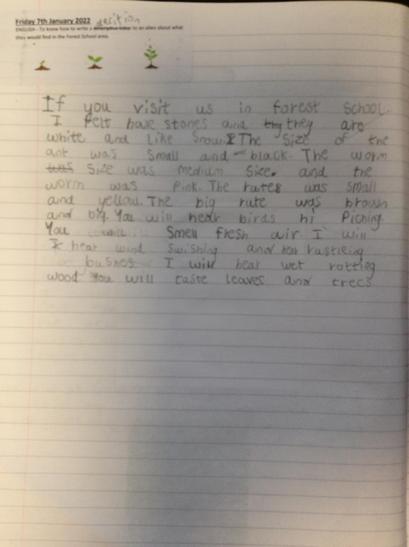 Friday 7th January 2022
ENGLISH - To know how to write a descriptive letter to an alien about what
they would find in the Forest School area.
If you visit us in forest School.
I felt have stones and thy they are
white and like snow. The Size of the
ant was Small and black. The worm
was Size was medium Size. and the
worm was Pink. The rutes was small
and yellow. The big rute was brown
and big. You will hear birds hi Piching
You will Smell fresh air I will
hear wind Swishing and rustleing
bushes I will hear wet rotting
wood You will taste leaves and trees